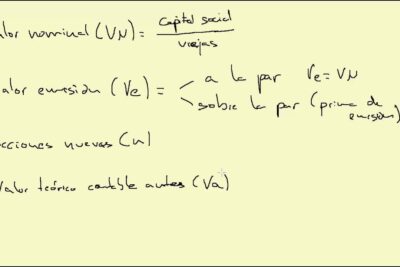 alor nominal (VN) = Capital social / viejas
alor emisión (Ve) = a la par Ve = VN
sobre la par (prima de emisión)
cciones nuevas (n)
Valor teórico contable antes (Va)